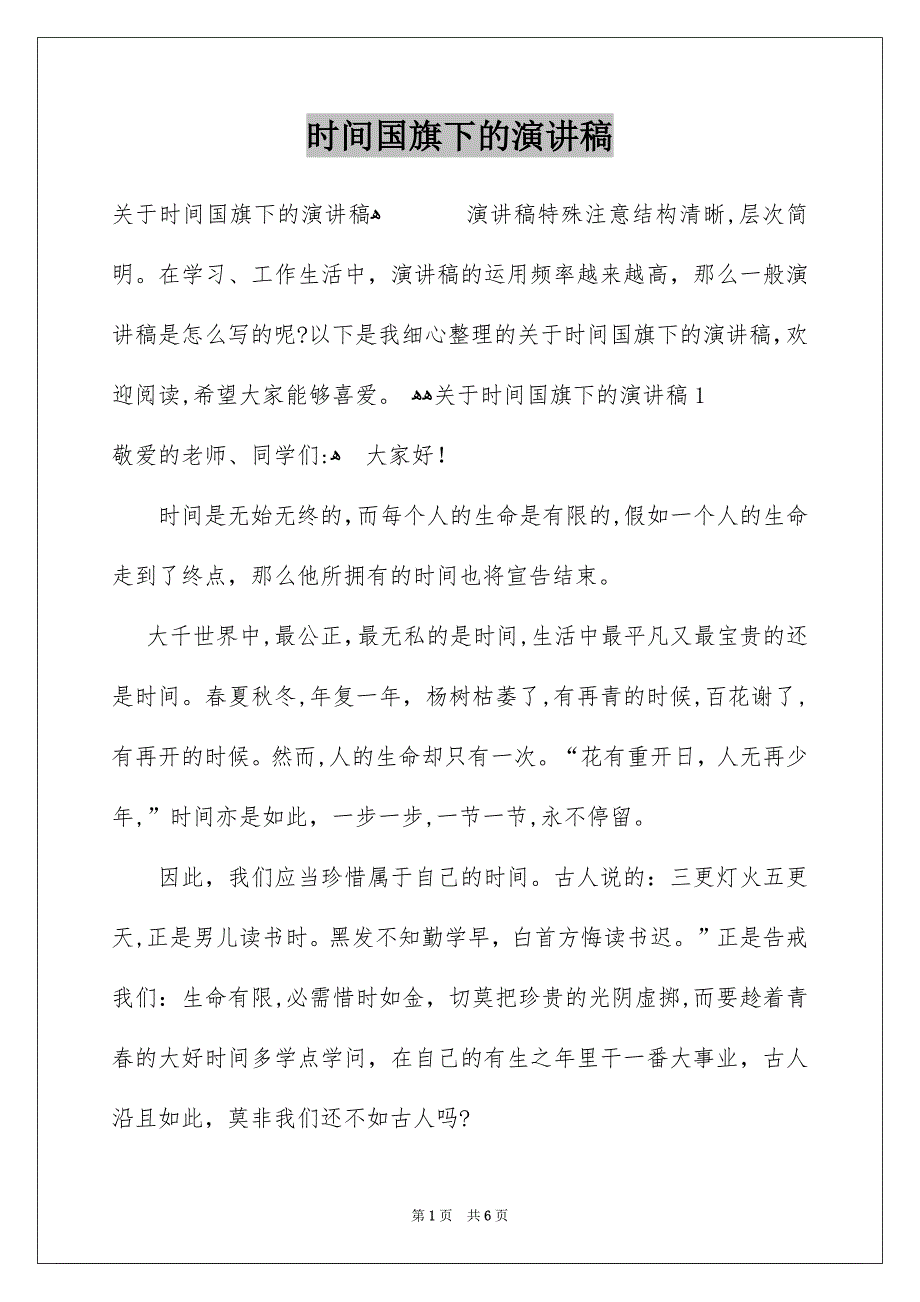 时间国旗下的演讲稿
关于时间国旗下的演讲稿ﻫ 演讲稿特殊注意结构清晰,层次简
明。在学习、工作生活中，演讲稿的运用频率越来越高，那么一般演
讲稿是怎么写的呢?以下是我细心整理的关于时间国旗下的演讲稿，欢
迎阅读,希望大家能够喜爱。 ﻫﻫ关于时间国旗下的演讲稿1
敬爱的老师、同学们:ﻫ 大家好！
时间是无始无终的,而每个人的生命是有限的,假如一个人的生命
走到了终点，那么他所拥有的时间也将宣告结束。
大千世界中,最公正，最无私的是时间,生活中最平凡又最宝贵的还
是时间。春夏秋冬,年复一年，杨树枯萎了,有再青的时候,百花谢了,
有再开的时候。然而,人的生命却只有一次。“花有重开日，人无再少
年,”时间亦是如此，一步一步,一节一节,永不停留。
因此，我们应当珍惜属于自己的时间。古人说的：三更灯火五更
天,正是男儿读书时。黑发不知勤学早，白首方悔读书迟。”正是告戒
我们：生命有限,必需惜时如金，切莫把珍贵的光阴虚掷,而要趁着青
春的大好时间多学点学问，在自己的有生之年里干一番大事业，古人
沿且如此，莫非我们还不如古人吗?
第 1 页 共 6 页